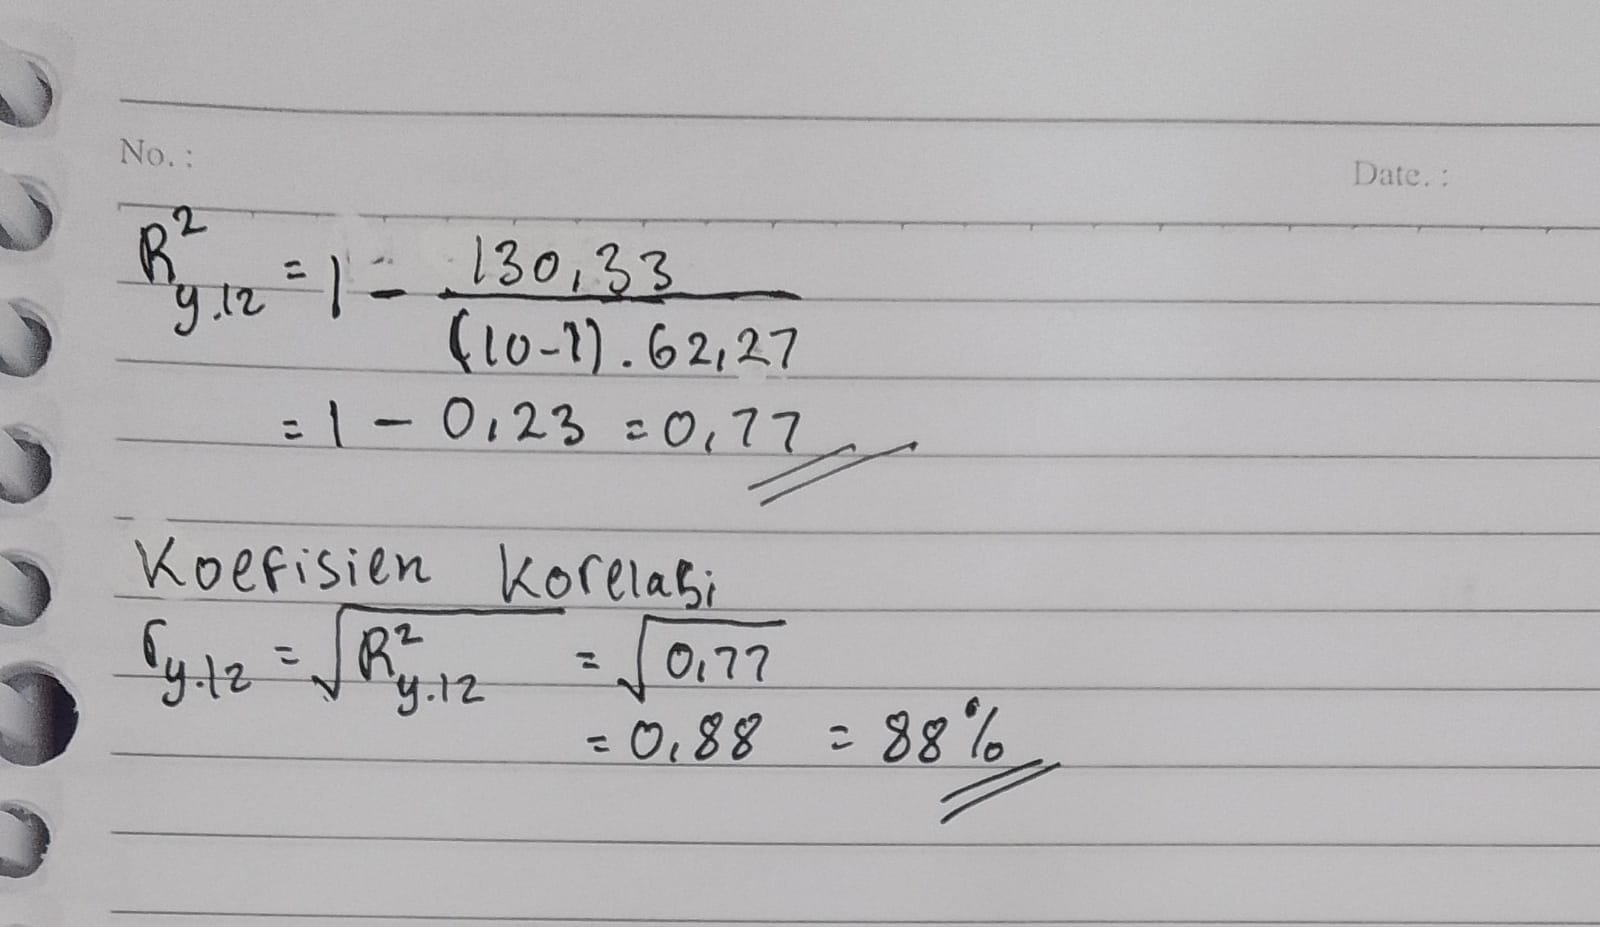 No. :
Date. :
R²y.12 = 1 - 130,33 / (10-1) . 62,27
= 1 - 0,23 = 0,77
Koefisien Korelasi
ry.12 = √R²y.12 = √0,77
= 0,88 = 88%